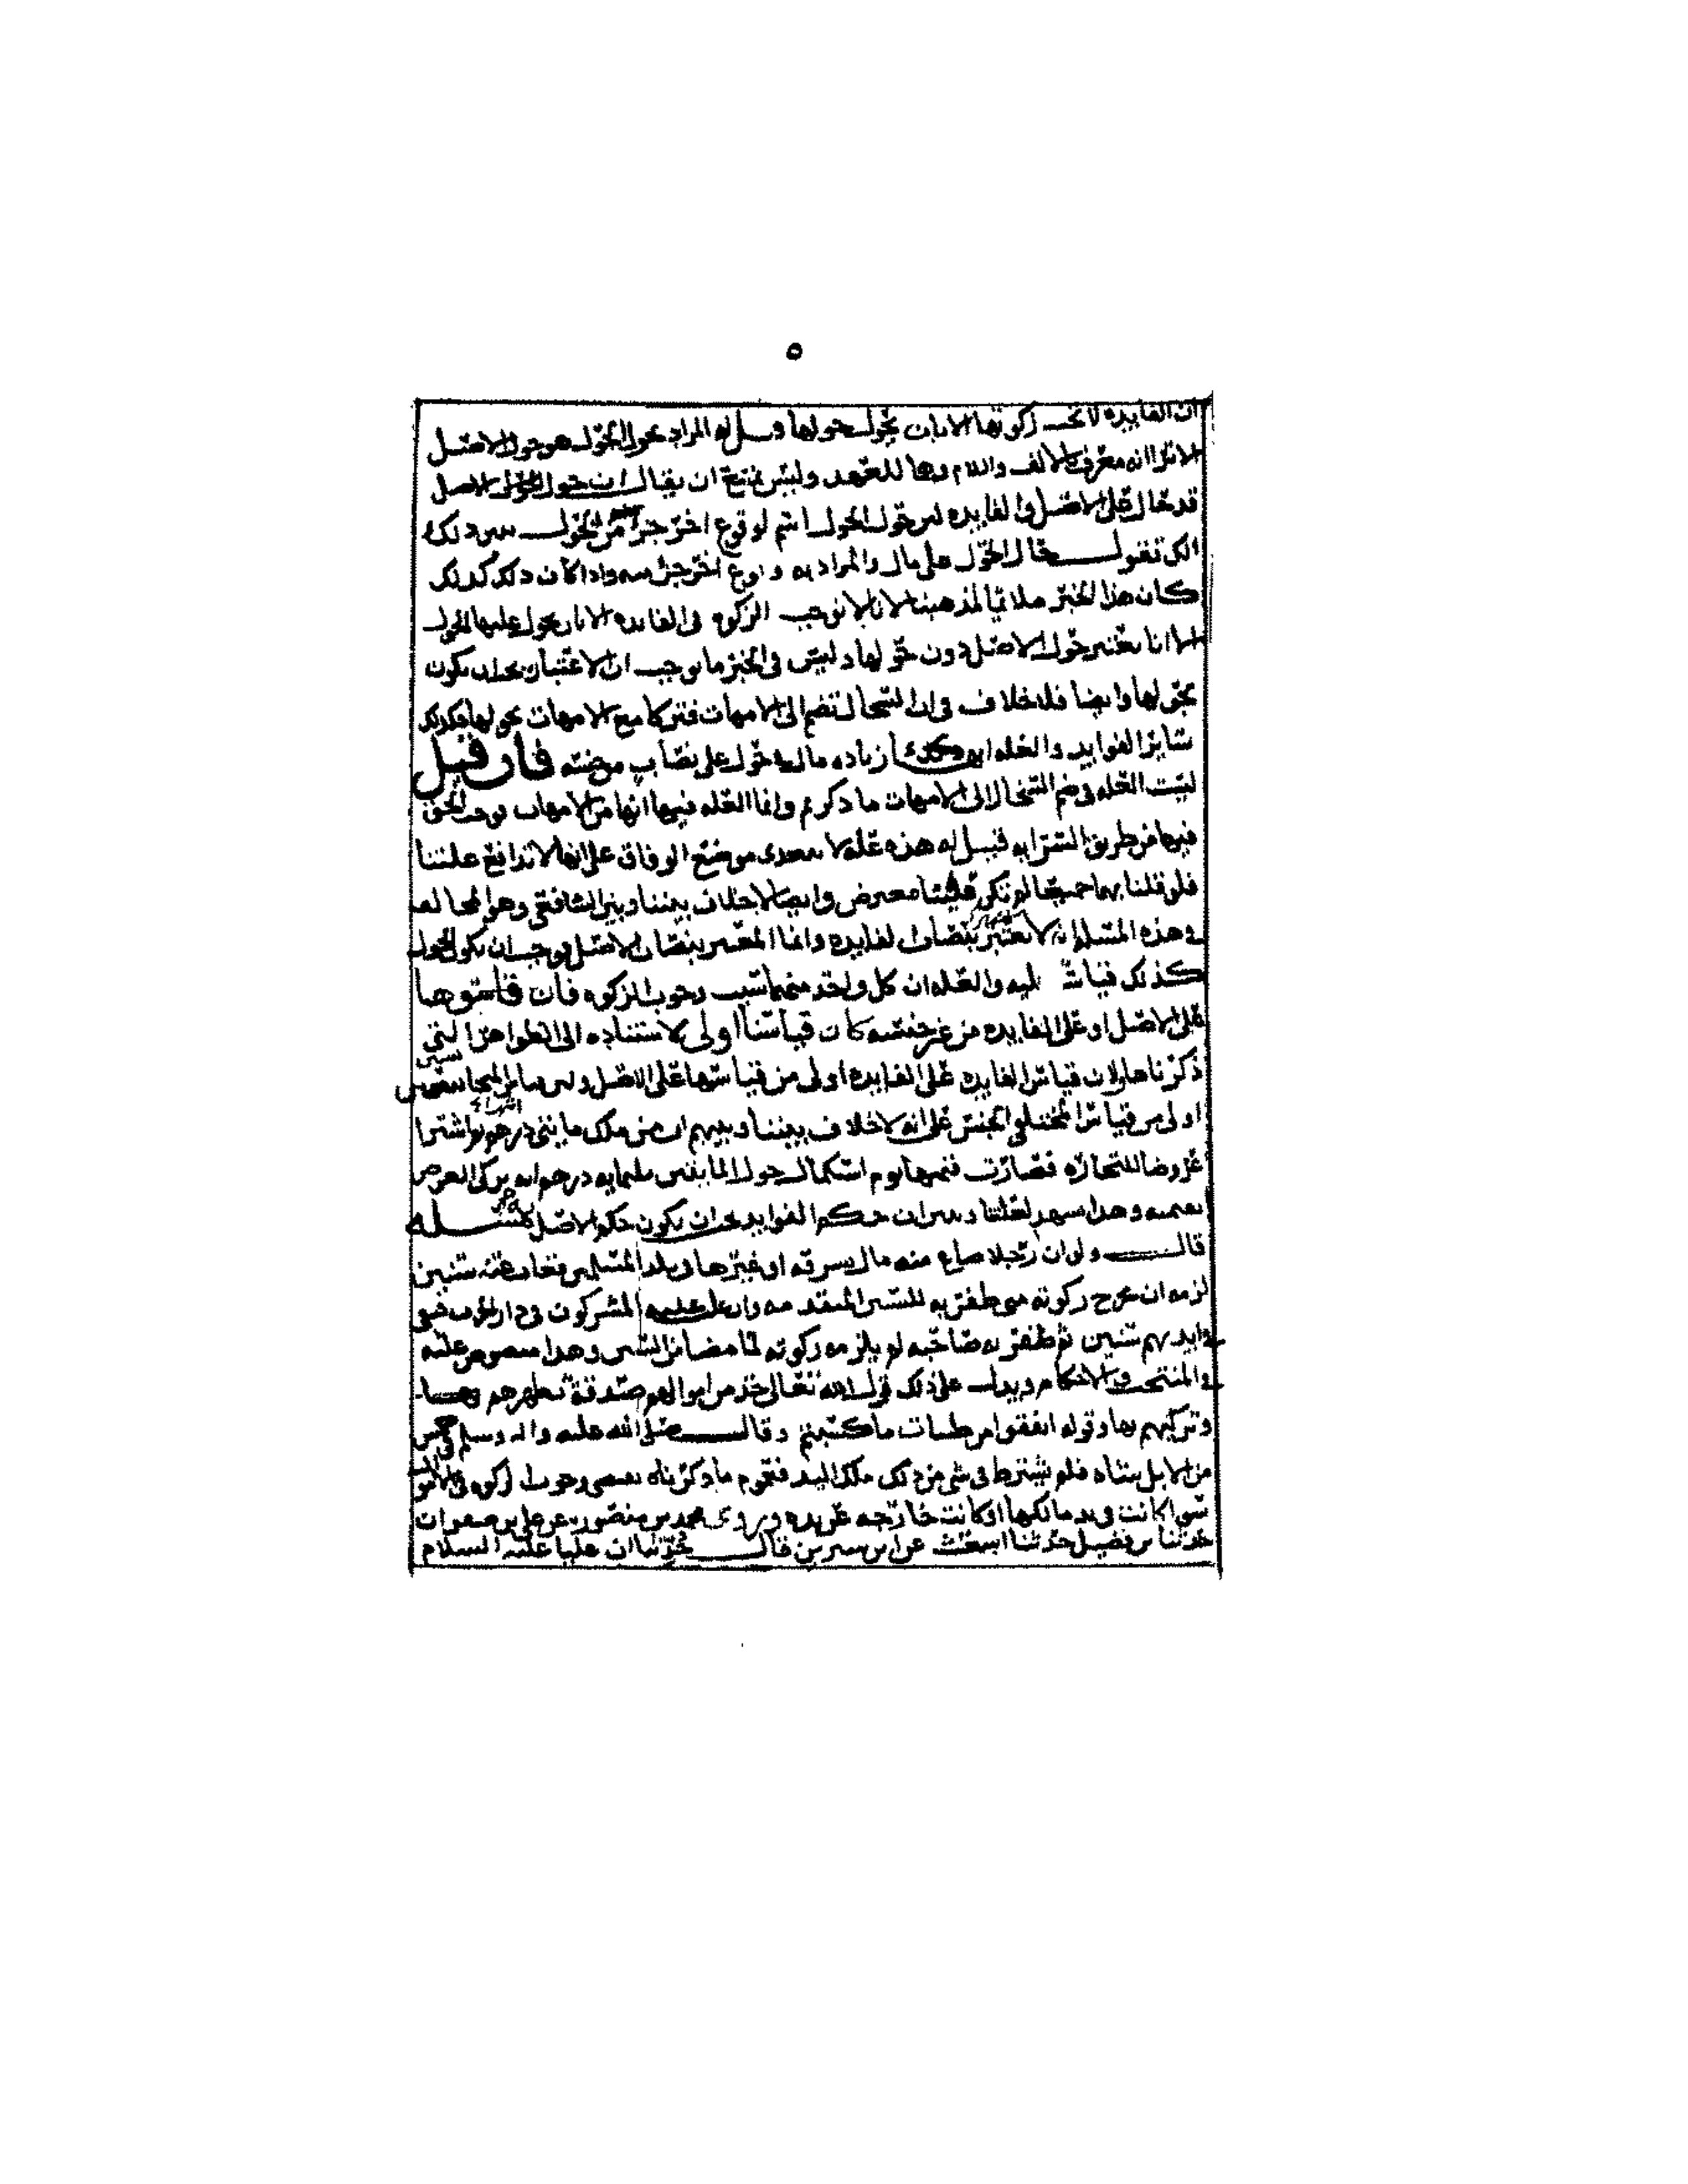 ٥
ان الفايده لا تجب زكوتها الا بان يحول حولها قيل له المراد بحول الحول هو حول الاصل
الا ترا انه معرف بالالف واللام وهما للعهد وليس يمتنع ان يقال ان حول الحول الاصل
قد حال على الاصل والفايده لان حول الحول اسم لوقوع اخر جز من الحول يبين ذلك
انك تقول حال الحول على مال والمراد به وقوع اخر جز منه واذا كان ذلك كذلك
كان هذا الخبر ملائما لمذهبنا لانا لا نوجب الزكوة في الفايده الا بان يحول عليها الحول
الا انا نعتبر حول الاصل دون حولها وليس في الخبر ما يوجب ان الاعتبار يجب ان يكون
بحولها وايضا فلا خلاف في ان السخال تضم الى الامهات فتزكا مع الامهات بحولها فكذلك
سائر الفوايد والعله انه زياده مال حول على نصاب من جنسه فان قيل
ليست العله في ضم السخال الى الامهات ما ذكرتم وانما العله فيها انها من الامهات فوجب الحق
فيها من طريق السرايه قيل له هذه عله لا تتعدى موضع الوفاق على انها لا تدافع علتنا
فلو قلنا بهما جميعا لم يكن قياسنا معترض وايضا لا خلاف بيننا وبين الشافعي وهو المخالف
في هذه المسله انه لا يعتبر بنصاب الفايده وانما المعتبر بنصاب الاصل فوجب ان يكون الحول
كذلك قياسا عليه والعله ان كل واحد منهما سبب وجوب الزكوه فان قاسوها
على الاصل او على الفايده من غير جنسه كان قياسنا اولى لاستناده الى الظواهر التي
ذكرناها ولان قياس الفايده على الفايده اولى من قياسها على الاصل ولان قياس المجانس
اولى من قياس المختلفي الجنس على انه لا خلاف بيننا وبينهم ان من ملك مايتي درهم ثم اشترا
عروضا للتجاره فصارت قيمتها يوم استكمال حول المايتين ثلثمايه درهم انه يزكي العرض
بقيمته وهذا يشهد لعلتنا ويبين ان حكم الفوايد يجب ان يكون حكم الاصل مسله
قال ولو ان رجلا ضاع منه مال بسرقه او غيرها في بلد المسلمين فغاب عنه سنين
لزمه ان يخرج زكوته متى ظفر به للسنين المتقدمه وان غلب عليه المشركون في دار الحرب فبقي
في ايديهم سنين ثم ظفر به صاحبه لم يلزمه زكوته لما مضا من السنين وهذا منصوص عليه
في المنتخب والاحكام ويدل على ذلك قول الله تعالى خذ من اموالهم صدقة تطهرهم
وتزكيهم بها وقوله انفقوا من طيبات ما كسبتم وقال صلى الله عليه واله وسلم في خمس
من الابل شاه فلم يشترط في شي من ذلك ملك اليد فعموم ما ذكرناه يقتضي وجوب الزكوه في الاموال
سوا كانت في يد مالكها او كانت خارجه عن يده وروى محمد بن منصور عن علي بن
حدثنا بن فضيل حدثنا اشعث عن ابن سيرين قال حدثنا ان عليا عليه السلام